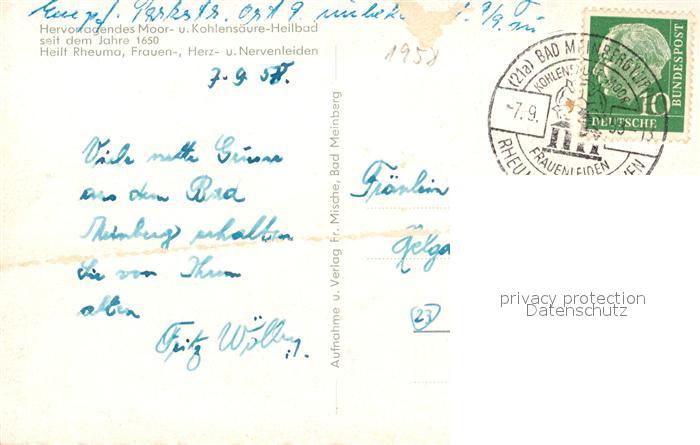 Parkstr. Ort 9.
Hervorragendes Moor- u. Kohlensäure-Heilbad
seit dem Jahre 1650
Heilt Rheuma, Frauen-, Herz- u. Nervenleiden
1958
7.9.58.
Viele nette Grüsse
aus dem Bad
Meinberg erhalten
Sie von Ihrem
alten
Fritz
Aufnahme u. Verlag Fr. Mische, Bad Meinberg
Fräulein
Helga
23
(21a) BAD MEINBERG
KOHLENS
-7.9.
RHEUM
FRAUENLEIDEN
10
DEUTSCHE
BUNDESPOST
privacy protection
Datenschutz